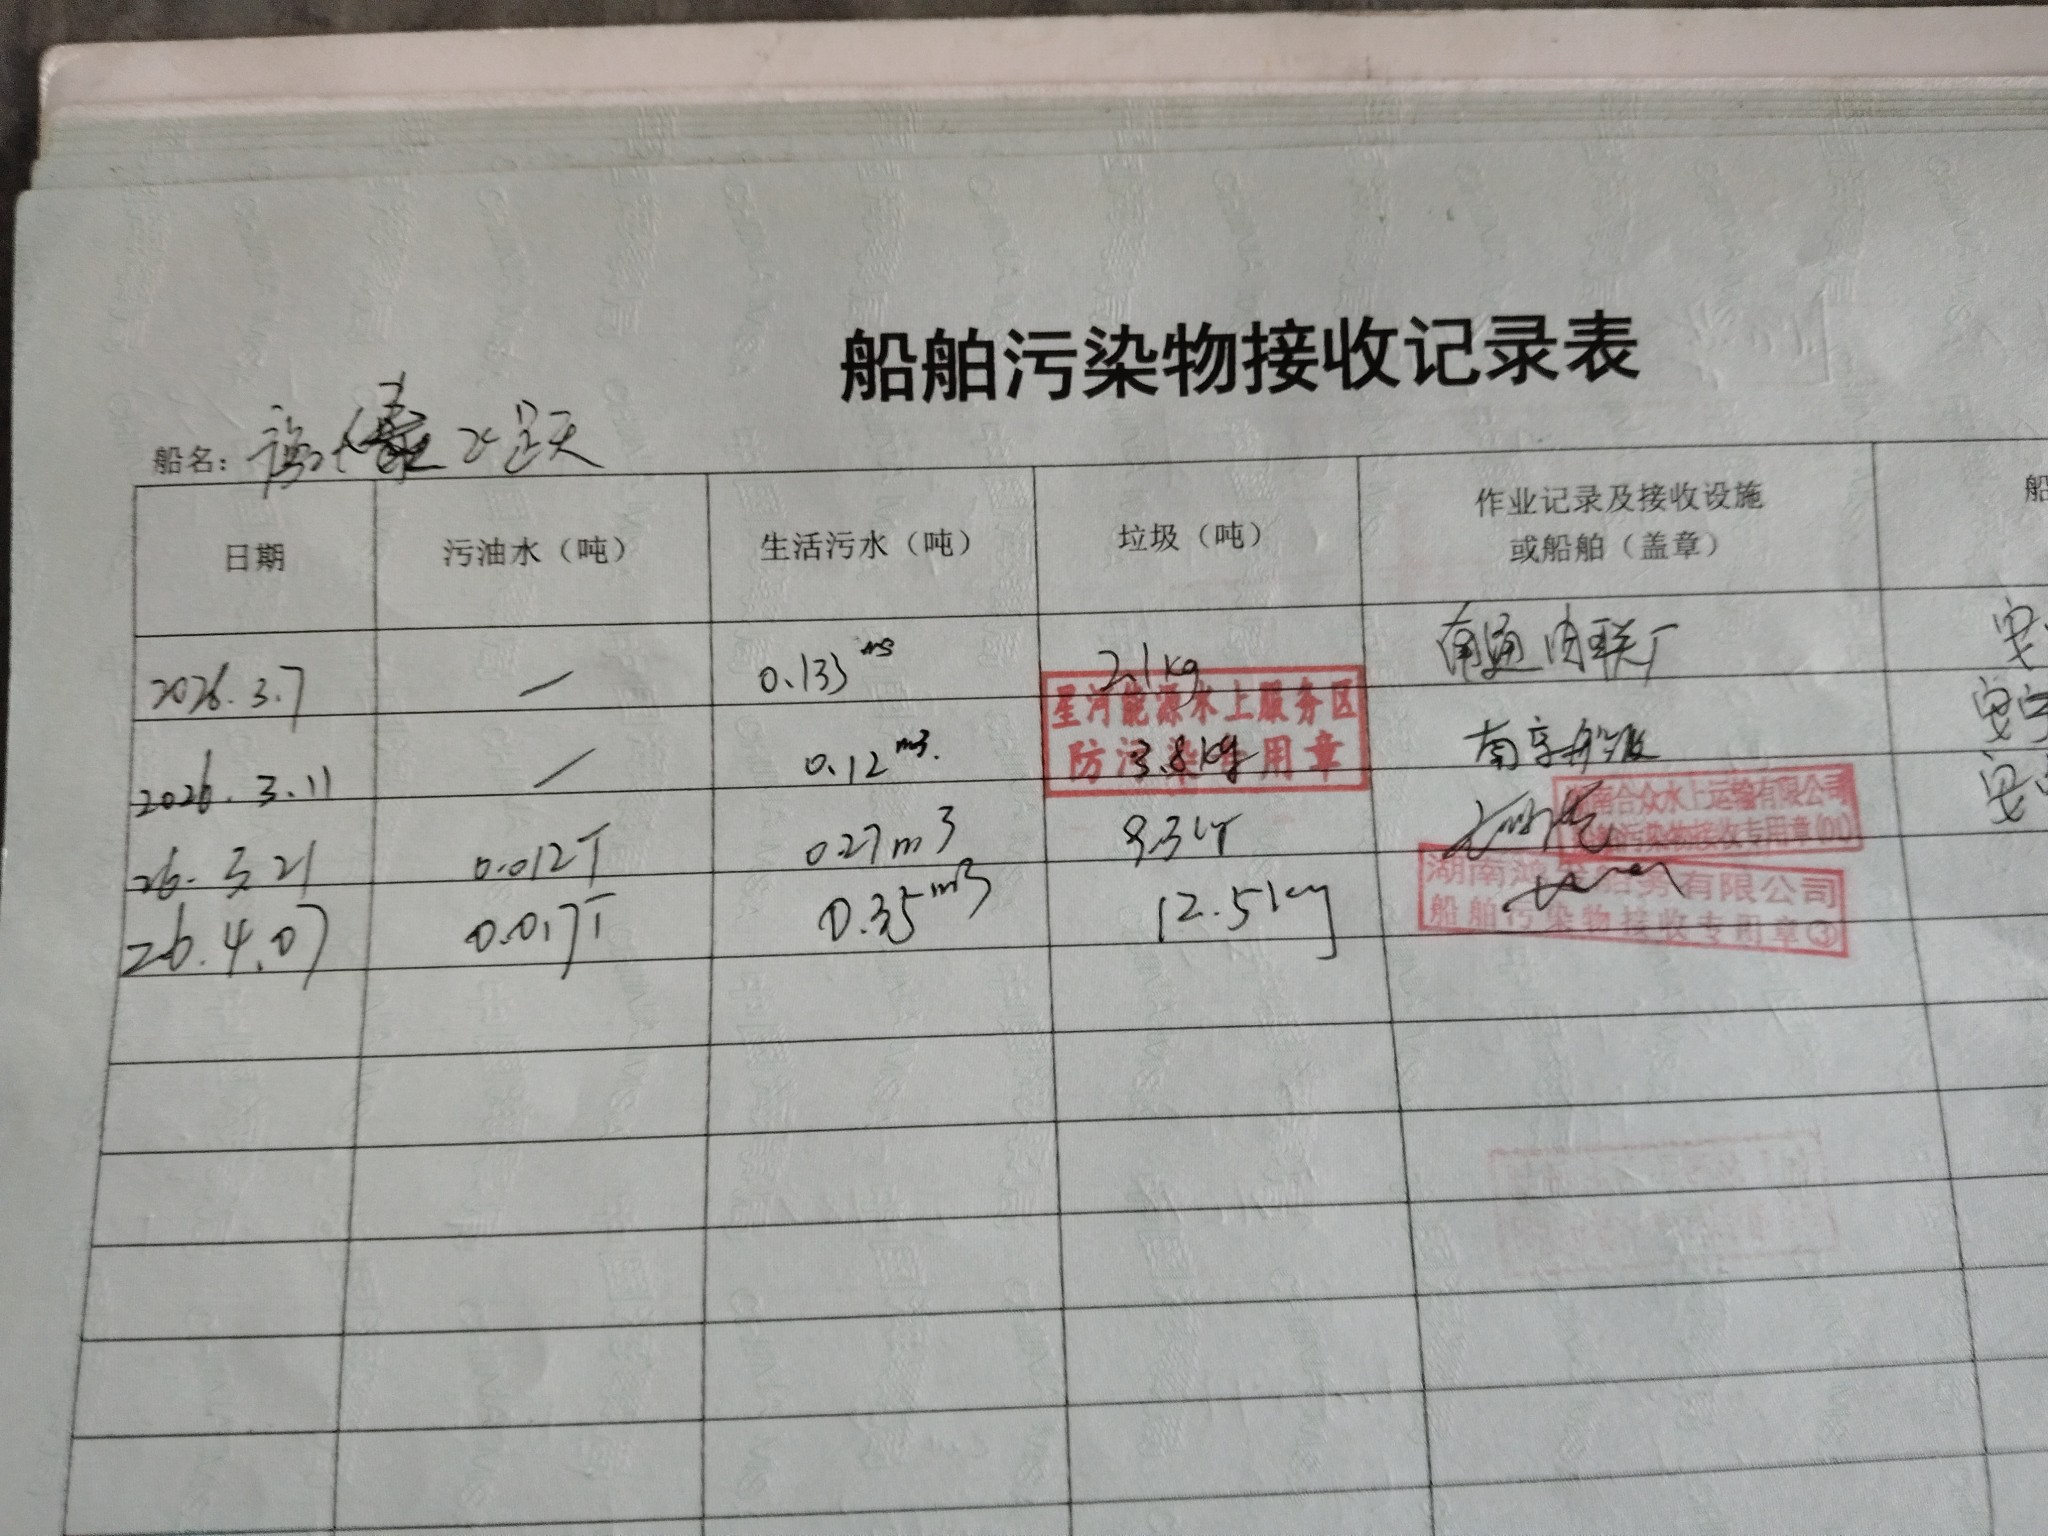 船舶污染物接收记录表
船名：
日期 污油水（吨） 生活污水（吨） 垃圾（吨） 作业记录及接收设施或船舶（盖章） 船
2026.3.7 — 0.133 m3 2.1kg 南通肉联厂
星河能源水上服务区
防污染专用章
2026.3.11 — 0.12 m3. 3.8kg 南京
南合众水上运输有限公司
污染物接收专用章(01)
26.3.21 0.012T 0.27m3
26.4.07 0.017T 0.35m3 12.5kg
湖南 船务有限公司
船舶污染物接收专用章③